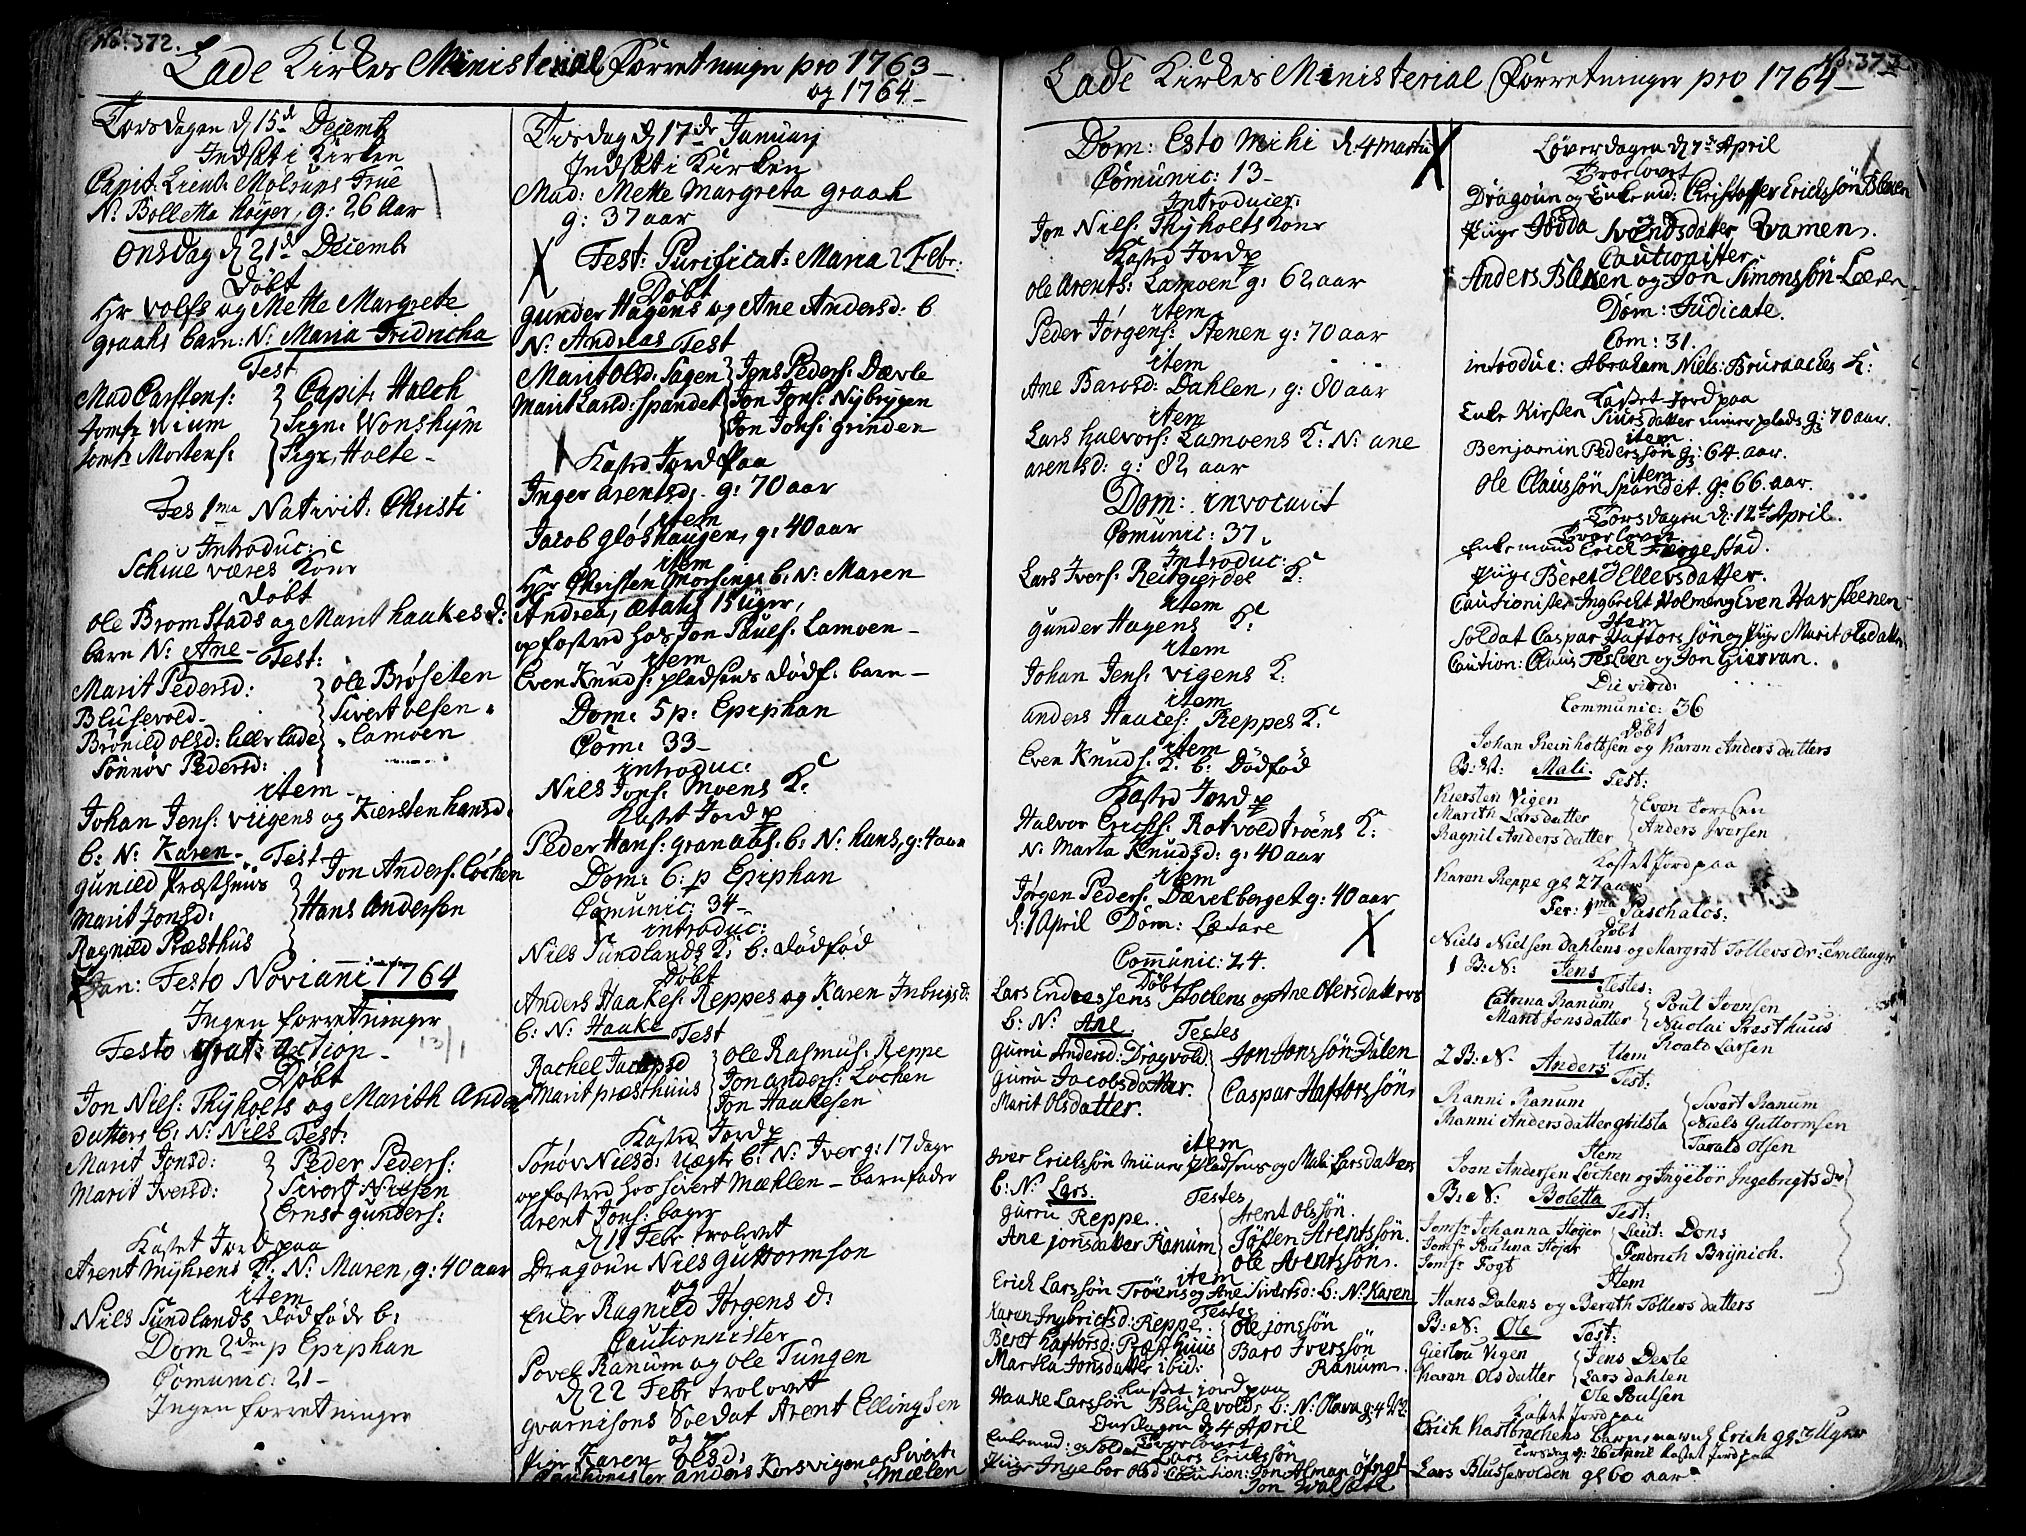 No: 372.
Lade Kirkes Ministerial Forretninger pro 1763
og 1764
Torsdagen d 15d Decemb
Indsat i Kirken
Capit: Lieut: Frue
N: Bolletta höyer, g: 26 Aar
Onsdag d 21d Decemb
Døbt
Hr Volfs og Mette Margrete
graahs barn: N: Maria Fridricha
Test
Mad Carstens:
Capit: Halch
Jomfr Wium
Sign: Wonshÿm
Jomfr Mortens:
Sigr, Holte
Fes 1ma Nativit: Christi
Introduc:
væres Kone
Døbt
Ole Bromstads og Marit haakesd:
barn N: Ane - Test:
Marit Pedersd:
Blusevold
Ole Brøseten
Sivert olsen
Brønild olsd: lillelade
Lamoen
Sønnøv Pedersd:
item
Johan Jens: viigens og Kiersten hansd:
b: N: Karen - Test
Jon Anders: Løchen
gunild Præsthuus
Marit Jonsd:
Hans Andersen
Ragnild Præsthus
Jan: Festo Novianni 1764
Ingen forretninger
Festo grat: action 13/1
Døbt
Jon Niels: Thÿholts og Marith Anders
datters b: N: Niels Test:
Marit Jonsd:
Peder Peders:
Marit Iversd:
Sivert Nielsen
Ernst gunders:
Kastet Jord paa
Arent mÿhrens K: N: Maren, g: 40 aar
item
Niels Sundlands dødføde b:
Dom 2den p Epiphan
Comunic: 21 -
Ingen forretninger
Tisdag d 17de Januarj
Indsat i Kirken
Mad: Mette Margreta graah
g: 37 aar
Fest: Purificat: Maria 2 Febr:
Døbt
gunder Hagens og Ane Andersd: b
N: Andreas Test
Marit olsd: Jagen
Jens Peders: Dævle
Marit Larsd: Spandet
Jon Jons: Nÿbrygen
Jon Jons: grinden
Kasted Jord paa
Inger arentsd. g: 70 aar
item
Jacob gløshaugen, g: 40 aar
item
Hr Christen Morsings b: N: Maren
Andrea, ætatis 15 uger,
opfostred hos Jon Pauls: Lamoen -
item
Even Knuds: pladsens dødf: barn -
Dom: 5 p: Epiphan
Com: 33 -
introduc:
Niels Jons: Moens K:
Kastet Jord p
Peder Hans: granaas: b: N: hans, g: 4 aar
Dom: 6: p Epiphan
Comunic: 34 -
introduc:
Niels Sundlands K: b: dødfød
Døbt
Anders Haakes: Reppes og Karen Inbrigsd:
b: N: Haake Test
Rachel Jacobsd
Ole Rasmus: Reppe
Marit præsthuus
Jon anders: Løchen
Jon Haakesen
Kasted Jord p
Sønøv Nielsd: uægte b: N: Iver g: 17 dage
opfostred hos Sivert Mæhlen - barnefader
arent Jons: bager
d 11 Febr trolovet
Dragoun Niels Guttormson
og
Enke Ragnild Jørgens d:
Cautionister
Povel Ranum og Ole Tungen
d 22 Febr trolovet
gvarnisons Soldat Arent Ellingsen
og
Pige Karen olsd:
Cautionister anders Korsvigen og Sivert:
Mælen
No: 373
Lade Kirkes Ministerial Forretninger pro 1764
Dom: Esto Mihi d 4 Martii
Comunic: 13 -
Introducier:
Jon Niels: Thÿholts Kone
Kasted Jord p
Ole Arents: Lamoen g: 62 aar
item
Peder Jørgens: Stenen g: 70 aar
item
Ane Barosd: Dahlen, g: 80 aar
item
Lars halvors: Lamoens K: N: ane
arentsd: g: 82 aar
Dom: invocavit
Comunic: 37
Introduc:
Lars Ivers: Reitgierdet K:
item
gunder Hagens K:
item
Johan Jens: vigens K:
item
anders Haaces: Reppes K:
item
Even Knuds: K: b: dødfød
Kasted Jord p
Halvor Erichs: Rotvoldtrøens K:
N: Marta Knudsd: g: 40 aar
item
Jørgen Peders: Dævelberget g: 40 aar
d: 1 April Dom: Lætare
Comunic: 24.
Døbt
Lars Endressens og Ane Olersdatters
b: N: Ane Testes
Gurru Andersd: Dragvold
Jon Jonssön Dalen
Gurru Jacobsdatter.
Caspar Haftorssön
Marit Olsdatter.
item
Iver Erickssön pladsens og Mali Larsdatters
b: N: Lars. Testes
Gurru Reppe.
Arent Olssön.
Ane Jonsdatter Ranum
Arentssön.
Ole Arentssön.
item
Erick Larssön Trøens og Ane Sivertsd: b: N: Karen
Testes
Karen Ingbrictsd: Reppe
Ole Jonssön
Beret haftorsd: Præsthuus
Baro Iverssön
Martha Jonsdatter ibid:
Ranum
Kastet jord paa
Haake Larssön Blusevolds b: N: Olava g: 4 U:
Onsdagen d 4 April
Trorlovet
Enkemd: og Soldat Lars Erickssön
Pige Ingebor Olsd: Caution: Jon
Jon
Løverdagen d 7de April
Trorlovet
Dragoun og Enkemd: Christoffer Erickssön Bleken
Pige Iødda Svendsdatter Bramen.
Cautionister
Anders Bleken og Jon Simonssön Leeren
Dom: Judicate.
Com: 31.
introduc: Abraham Niels: K:
Kastet Jord paa
Enke Kirsten Siursdatter plads g: 70 aar.
item.
Benjamin Pederssön g: 64 aar.
item
Ole Claussön Spandet. g: 66 aar.
Torsdagen d: 12te April.
Trorlovet
Enkemand Erick Fergestad.
Pige Beret Ellersdatter.
Cautionister Ingbrickt Holmen og Even Havsteenen
Item
Soldat Caspar Haftorssön og Pige Marit Olsdatter
Caution: Claus og Jon Giervan.
Die virid:
Communic: 36
Døbt
Johan Reinholtsen og Karen Anders datters
B: N: Mali. Test:
Kiersten Vigen
Even
Marith Larsdatter
Anders Iversen
Ragnil Anders datter
Kastet Jord paa
Karen Reppe g: 27 aar
Fer: 1ma Paschatos:
Døbt
Niels Nielsen Dahlens og Margret Tollevs dr:
1 B: N: Jens
Testes:
Catrina Ranum
Poul Svensen
Marit Jonsdatter
Nicolai Præsthuus
Roald Larsen
Item
2 B: N. Anders
Test:
Ranni Ranum
Sivert Ranum
Ranni Andersdatter
Niels Guttormsen
Tarald Olsen
Item
Joen Andersen Løchen og Ingebor Ingebrigts dr
B: N: Boletta
Test:
Jomfr Johanna Høyer
Lieut: Dons
Jomfr Paulina Højer
Fendrich Brÿnich.
Jomfr Fogt
Item
Hans Dalens og Bereth Tollers datters
B: N: Ole Test:
Giertru Vigen
Jens Devle
Karen Olsdatter
Lars dahlen
Ole Pulsen
Kastet Jord paa
Erich Rastbrachens barn, navnl: Erich g: 3 Uger
Torsdag d: 26 April kastet Jord paa
Lars Blussevolden g: 60 aar